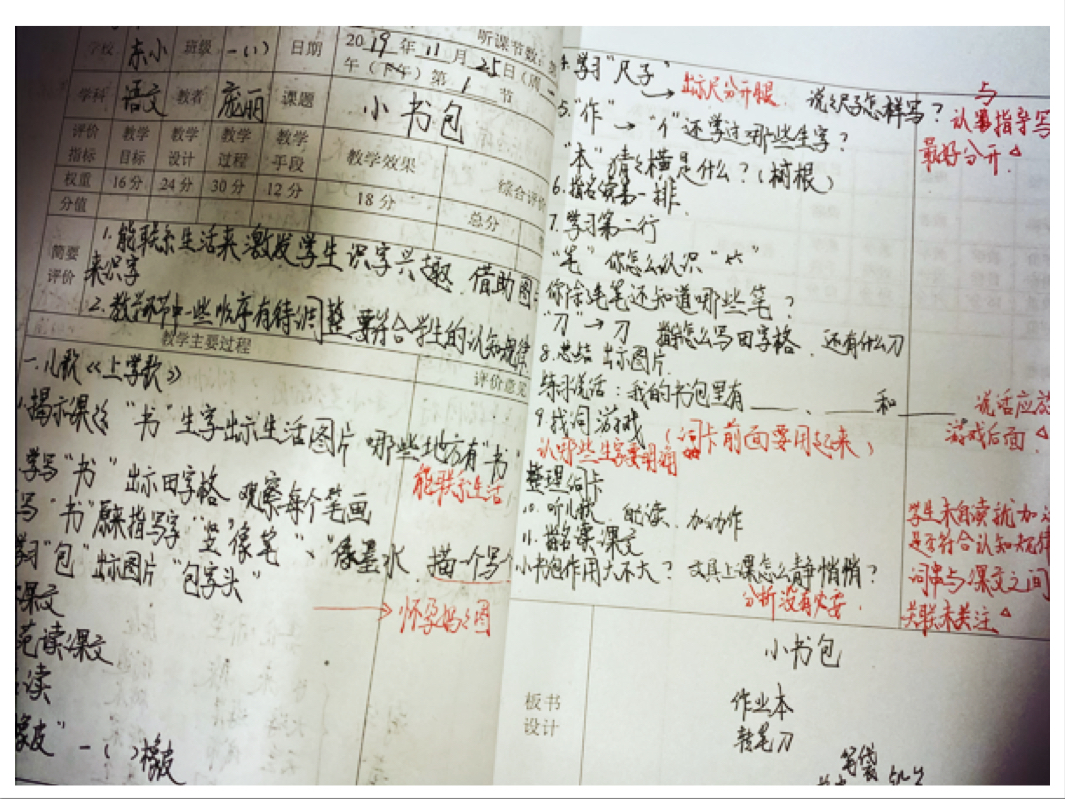 学校 东小 班级 一（1） 日期 2019年11月25日（周一
听课节数：
午（下午）第1节
学科 语文 教者 庞丽 课题 小书包
评价指标 教学目标 教学设计 教学过程 教学手段 教学效果 综合评价
权重 16分 24分 30分 12分 18分 总分
分值
简要评价
1.能联系生活来激发学生识字兴趣，借助图
来识字
2.教学环节中一些顺序有待调整，要符合学生的认知规律
教学主要过程
评价意见
一.儿歌《上学歌》
揭示课 "书"生字出示生活图片 哪些地方有"书"
能联系生活
学写"书" 出示田字格 观察每个笔画
写"书" 指写字 "竖"像笔"、"像墨水 描一个写个
学习"包" 出示图片 "包字头"
怀孕妈妈图
课文
范读课文
读
橡皮" 一（ ）橡皮
4.学习"尺子"
出示尺分开
说说尺子怎样写？
与
认 指导写
最好分开
5."作"→"亻"还学过哪些生字？
"本" 猜猜横是什么？（树根）
6.指名读第一排
7.学习第二行
"笔" 你怎么认识"⺮"
你除 笔还知道哪些笔？
"刀"→刀 怎么写田字格，还有什么刀
8.总结 出示图片
练习说话：我的书包里有____、____和____
说话应放
游戏后面
9.找词游戏
（词卡前面要用起来）
认哪些生字要明确
整理词卡
10.听儿歌 自读 加动作
11.指名读课文
学生未自读就加
是否符合认知规律
小书包作用大不大？文具上课怎么静悄悄？
分析没有必要
词串与课文之间
关联未关注
板书设计
小书包
作业本
转笔刀
笔袋